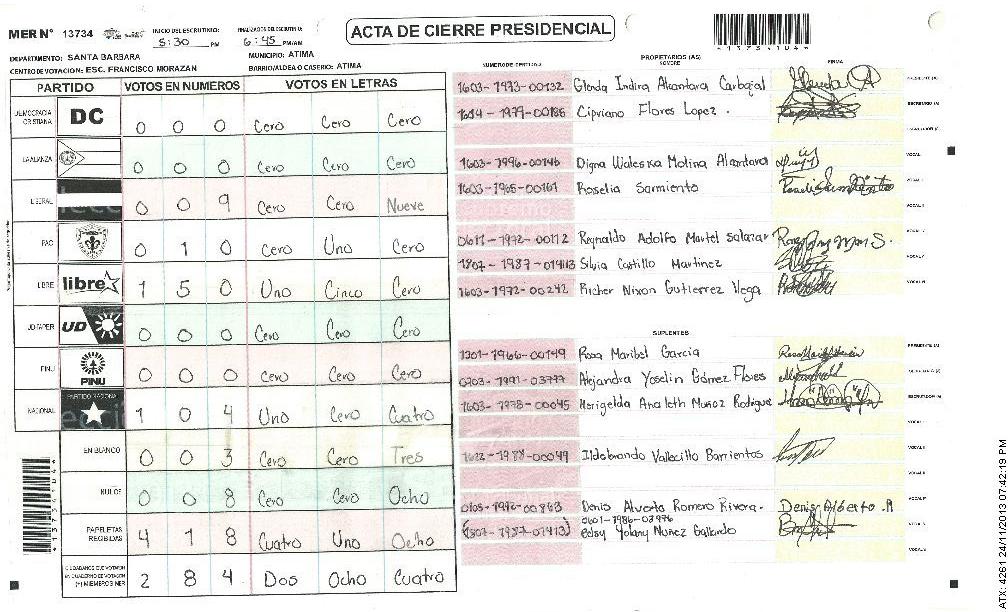 MER N° 13734
INICIO DEL ESCRUTINIO: 5:30 PM
FINALIZADOS DEL ESCRUTINIO: 6:45 PM/AM
ACTA DE CIERRE PRESIDENCIAL
DEPARTAMENTO: SANTA BARBARA
MUNICIPIO: ATIMA
CENTRO DE VOTACION: ESC. FRANCISCO MORAZAN
BARRIO/ALDEA O CASERIO: ATIMA
PARTIDO VOTOS EN NUMEROS VOTOS EN LETRAS
DEMOCRACIA CRISTIANA DC 0 0 0 Cero Cero Cero
LA ALIANZA 0 0 0 Cero Cero Cero
LIBERAL 0 0 9 Cero Cero Nueve
PAC 0 1 0 Cero Uno Cero
LIBRE libre 1 5 0 Uno Cinco Cero
UD FAPER UD 0 0 0 Cero Cero Cero
PINU PINU 0 0 0 Cero Cero Cero
NACIONAL PARTIDO NACIONAL 1 0 4 Uno Cero Cuatro
EN BLANCO 0 0 3 Cero Cero Tres
NULOS 0 0 8 Cero Cero Ocho
PAPELETAS RECIBIDAS 4 1 8 Cuatro Uno Ocho
CIUDADANOS QUE VOTARON EN CUADERNO DE VOTACION (+) MIEMBROS MER 2 8 4 Dos Ocho Cuatro
PROPIETARIOS (AS)
NOMBRE FIRMA
1603-1973-00132 Glenda Indira Alcantara Carbajal PRESIDENTE (A)
1614-1979-00186 Cipriano Flores Lopez. SECRETARIO (A)
1603-1996-00146 Digna Waleska Molina Alcantara VOCAL
1603-1965-00161 Roselia Sarmiento VOCAL
0611-1972-00112 Reynaldo Adolfo Martel Salazar VOCAL
1807-1987-01413 Silvia Castillo Martinez VOCAL
1603-1972-00242 Richer Nixon Gutierrez Vega VOCAL
SUPLENTES
1301-1966-00149 Rosa Maribel Garcia PRESIDENTE (A)
0703-1991-03777 Alejandra Yoselin Gómez Flores
1603-1978-00045 Herigelda Analeth Muñoz Rodrigue
1622-1988-00049 Ildebrando Vallecillo Barrientos VOCAL
Denis Alverto Romero Rivera. Denis Alberto .R
0601-1986-03976
(1807-1987-01413) Betsy Yolany Nuñez Gallardo
*413734104*
ATX: 4261 24/11/2013 07:42:19 PM